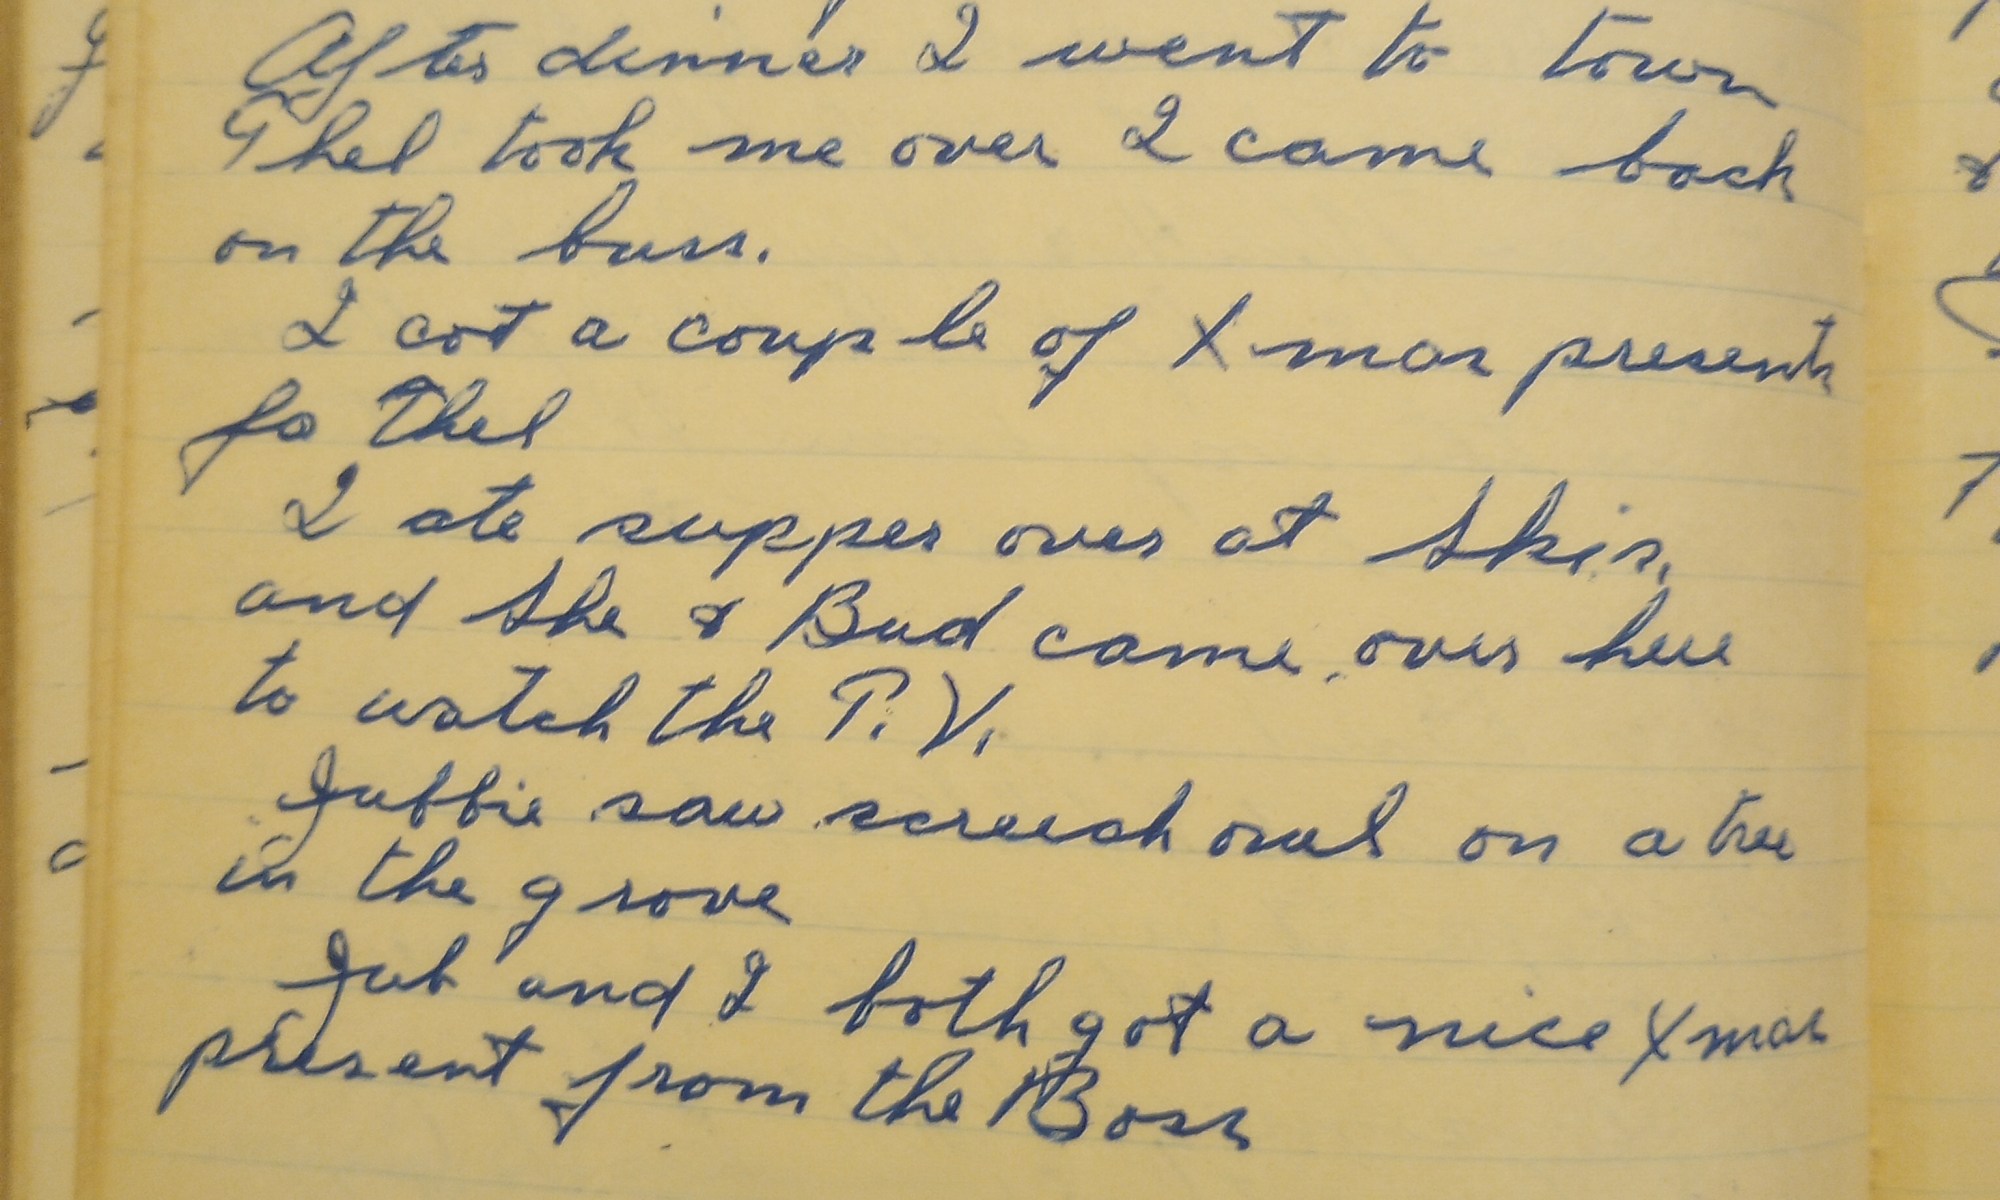 After dinner I went to town
Thel took me over I came back
on the buss.
I cot a couple of Xmas presents
fo Thel
I ate supper over at Skis.
and she & Bud came over here
to watch the T.V.
Jubbie saw screech owl on a tree
in the grove
Jub and I both got a nice Xmas
present from the Boss